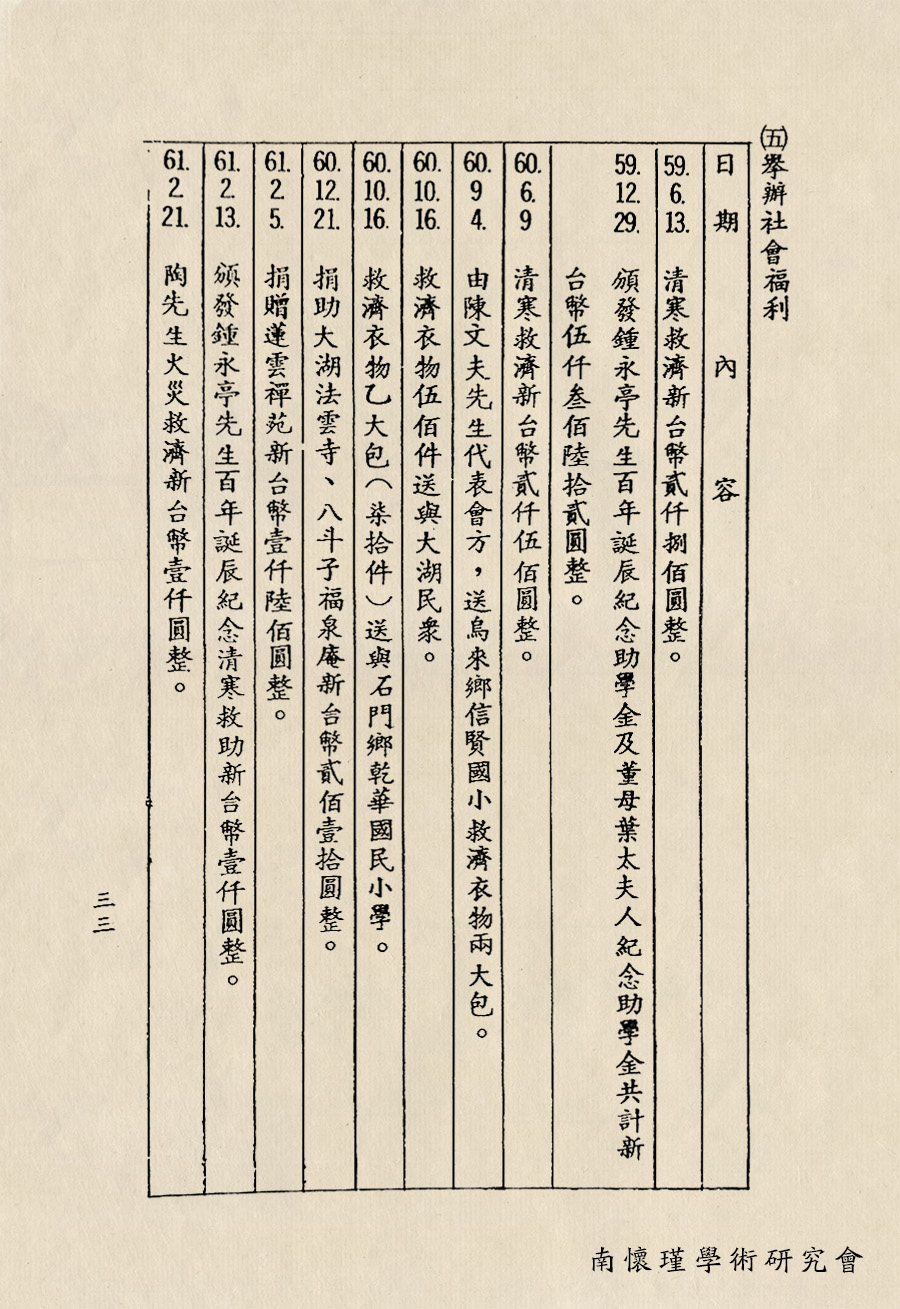 ㈤舉辦社會福利
日期 內容
59.6.13. 清寒救濟新台幣貳仟捌佰圓整。
59.12.29. 頒發鍾永亭先生百年誕辰紀念助學金及董母葉太夫人紀念助學金共計新
台幣伍仟叁佰陸拾貳圓整。
60.6.9 清寒救濟新台幣貳仟伍佰圓整。
60.9.4. 由陳文夫先生代表會方，送烏來鄉信賢國小救濟衣物兩大包。
60.10.16. 救濟衣物伍佰件送與大湖民衆。
60.10.16. 救濟衣物乙大包（柒拾件）送與石門鄉乾華國民小學。
60.12.21. 捐助大湖法雲寺、八斗子福泉庵新台幣貳佰壹拾圓整。
61.2.5. 捐贈蓮雲禪苑新台幣壹仟陸佰圓整。
61.2.13. 頒發鍾永亭先生百年誕辰紀念清寒救助新台幣壹仟圓整。
61.2.21. 陶先生火災救濟新台幣壹仟圓整。
三三
南懷瑾學術研究會